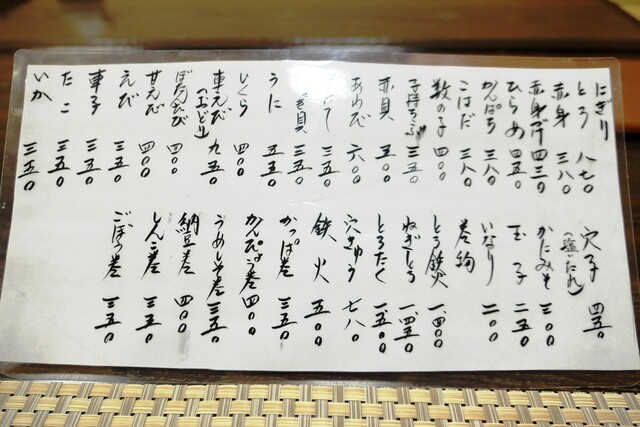 にぎり
とろ 八七〇
赤身 三八〇
赤身づけ 四三〇
ひらめ 四五〇
かんぱち 三八〇
こはだ 三八〇
数の子 四〇〇
子持ちこぶ 三五〇
赤貝 五〇〇
あわび 六〇〇
三五〇
貝 三五〇
うに 五五〇
いくら 四〇〇
車えび 九五〇
(おどり)
ぼたんえび 四〇〇
甘えび 四〇〇
えび 三五〇
車子 三五〇
たこ 三五〇
いか 三五〇
穴子 四五〇
(塩・たれ)
かにみそ 三〇〇
玉子 二五〇
いなり 二〇〇
巻物
とろ鉄火 一、四〇〇
ねぎとろ 一、四五〇
とろたく 一、五〇〇
穴きゅう 七八〇
鉄火 五〇〇
かっぱ巻 三五〇
かんぴょう巻 四〇〇
うめしそ巻 三五〇
納豆巻 四〇〇
しんこ巻 三五〇
ごぼう巻 三五〇